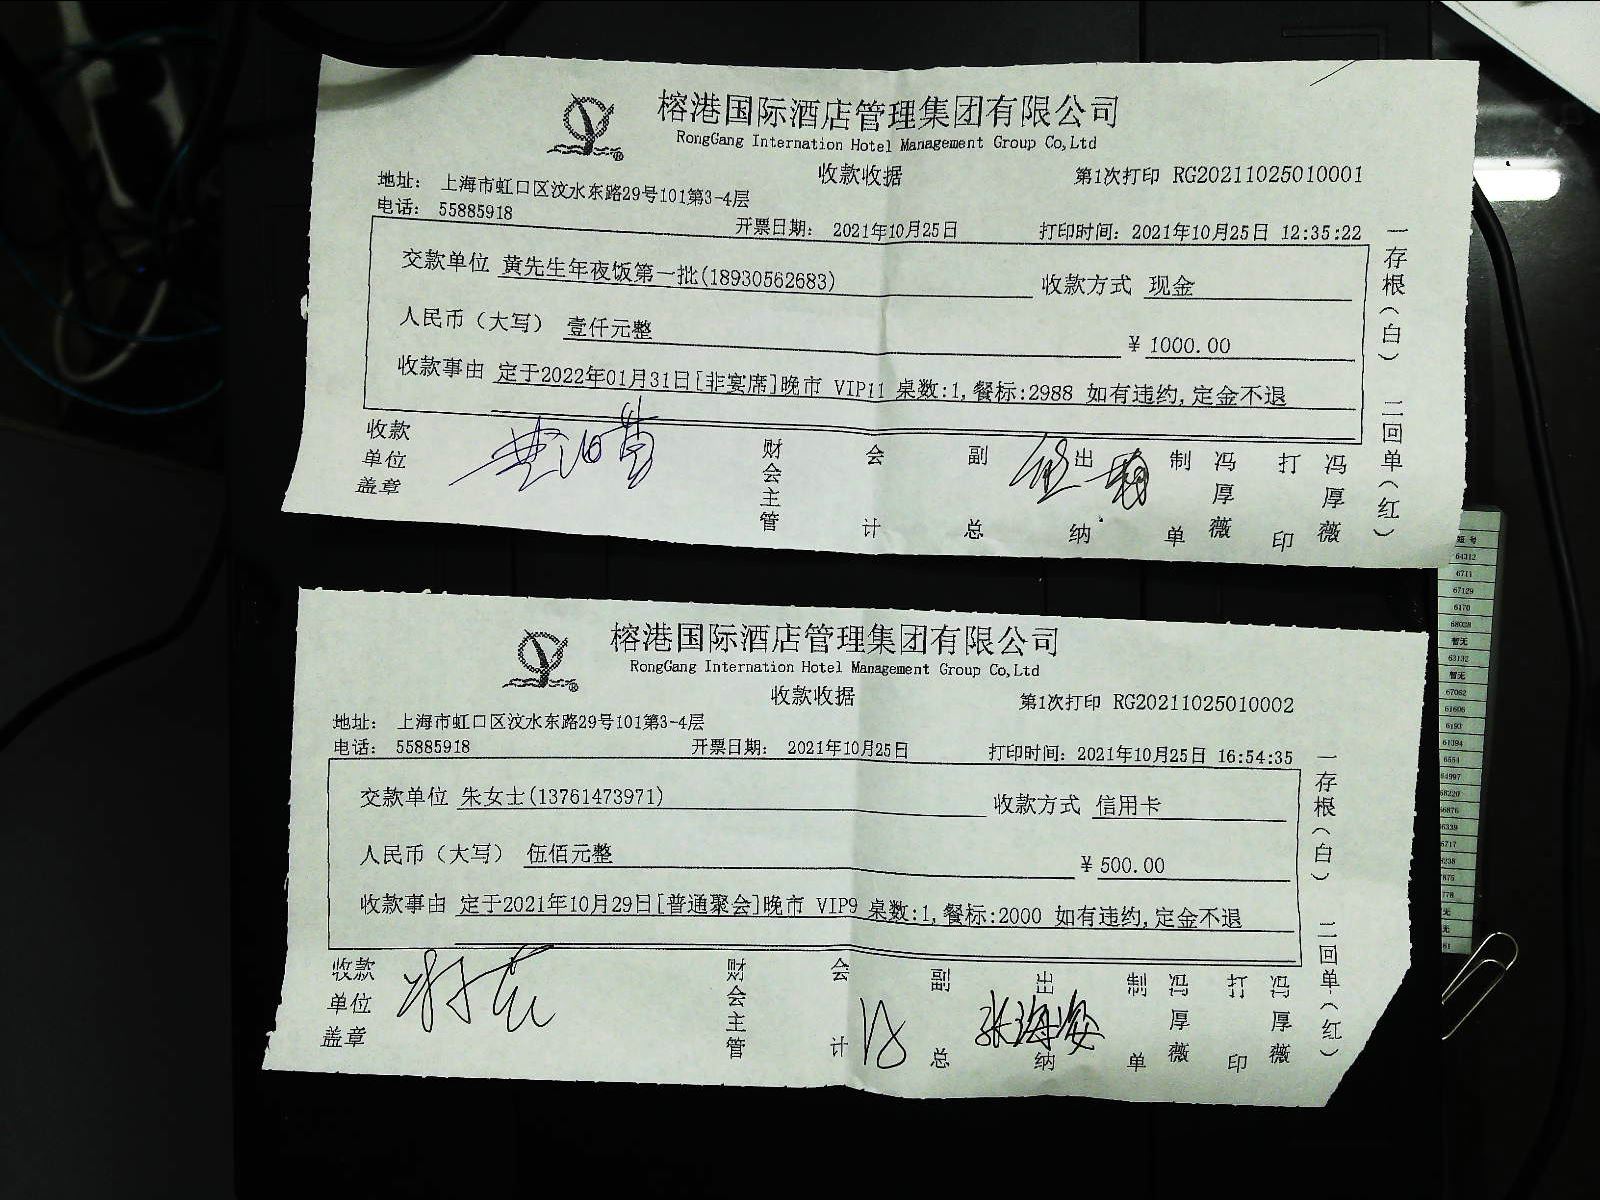 榕港国际酒店管理集团有限公司
RongGang Internation Hotel Management Group Co,Ltd
收款收据
第1次打印 RG20211025010001
地址： 上海市虹口区汶水东路29号101第3-4层
电话： 55885918
开票日期： 2021年10月25日
打印时间：2021年10月25日 12:35:22
交款单位 黄先生年夜饭第一批(18930562683)
收款方式 现金
人民币（大写） 壹仟元整
¥ 1000.00
收款事由 定于2022年01月31日[非宴席]晚市 VIP11 桌数:1,餐标:2988 如有违约,定金不退
收款单位盖章
财会主管
会计
副总
出纳
制单
冯厚薇
打印
冯厚薇
一存根（白） 二回单（红）
榕港国际酒店管理集团有限公司
RongGang Internation Hotel Management Group Co,Ltd
收款收据
第1次打印 RG20211025010002
地址： 上海市虹口区汶水东路29号101第3-4层
电话： 55885918
开票日期： 2021年10月25日
打印时间：2021年10月25日 16:54:35
交款单位 朱女士(13761473971)
收款方式 信用卡
人民币（大写） 伍佰元整
¥ 500.00
收款事由 定于2021年10月29日[普通聚会]晚市 VIP9 桌数:1,餐标:2000 如有违约,定金不退
收款单位盖章
财会主管
会计
副总
出纳
张海姿
制单
冯厚薇
打印
冯厚薇
一存根（白） 二回单（红）
短号
64312
6711
67129
6170
68028
暂无
63132
暂无
67062
61606
6193
61394
6551